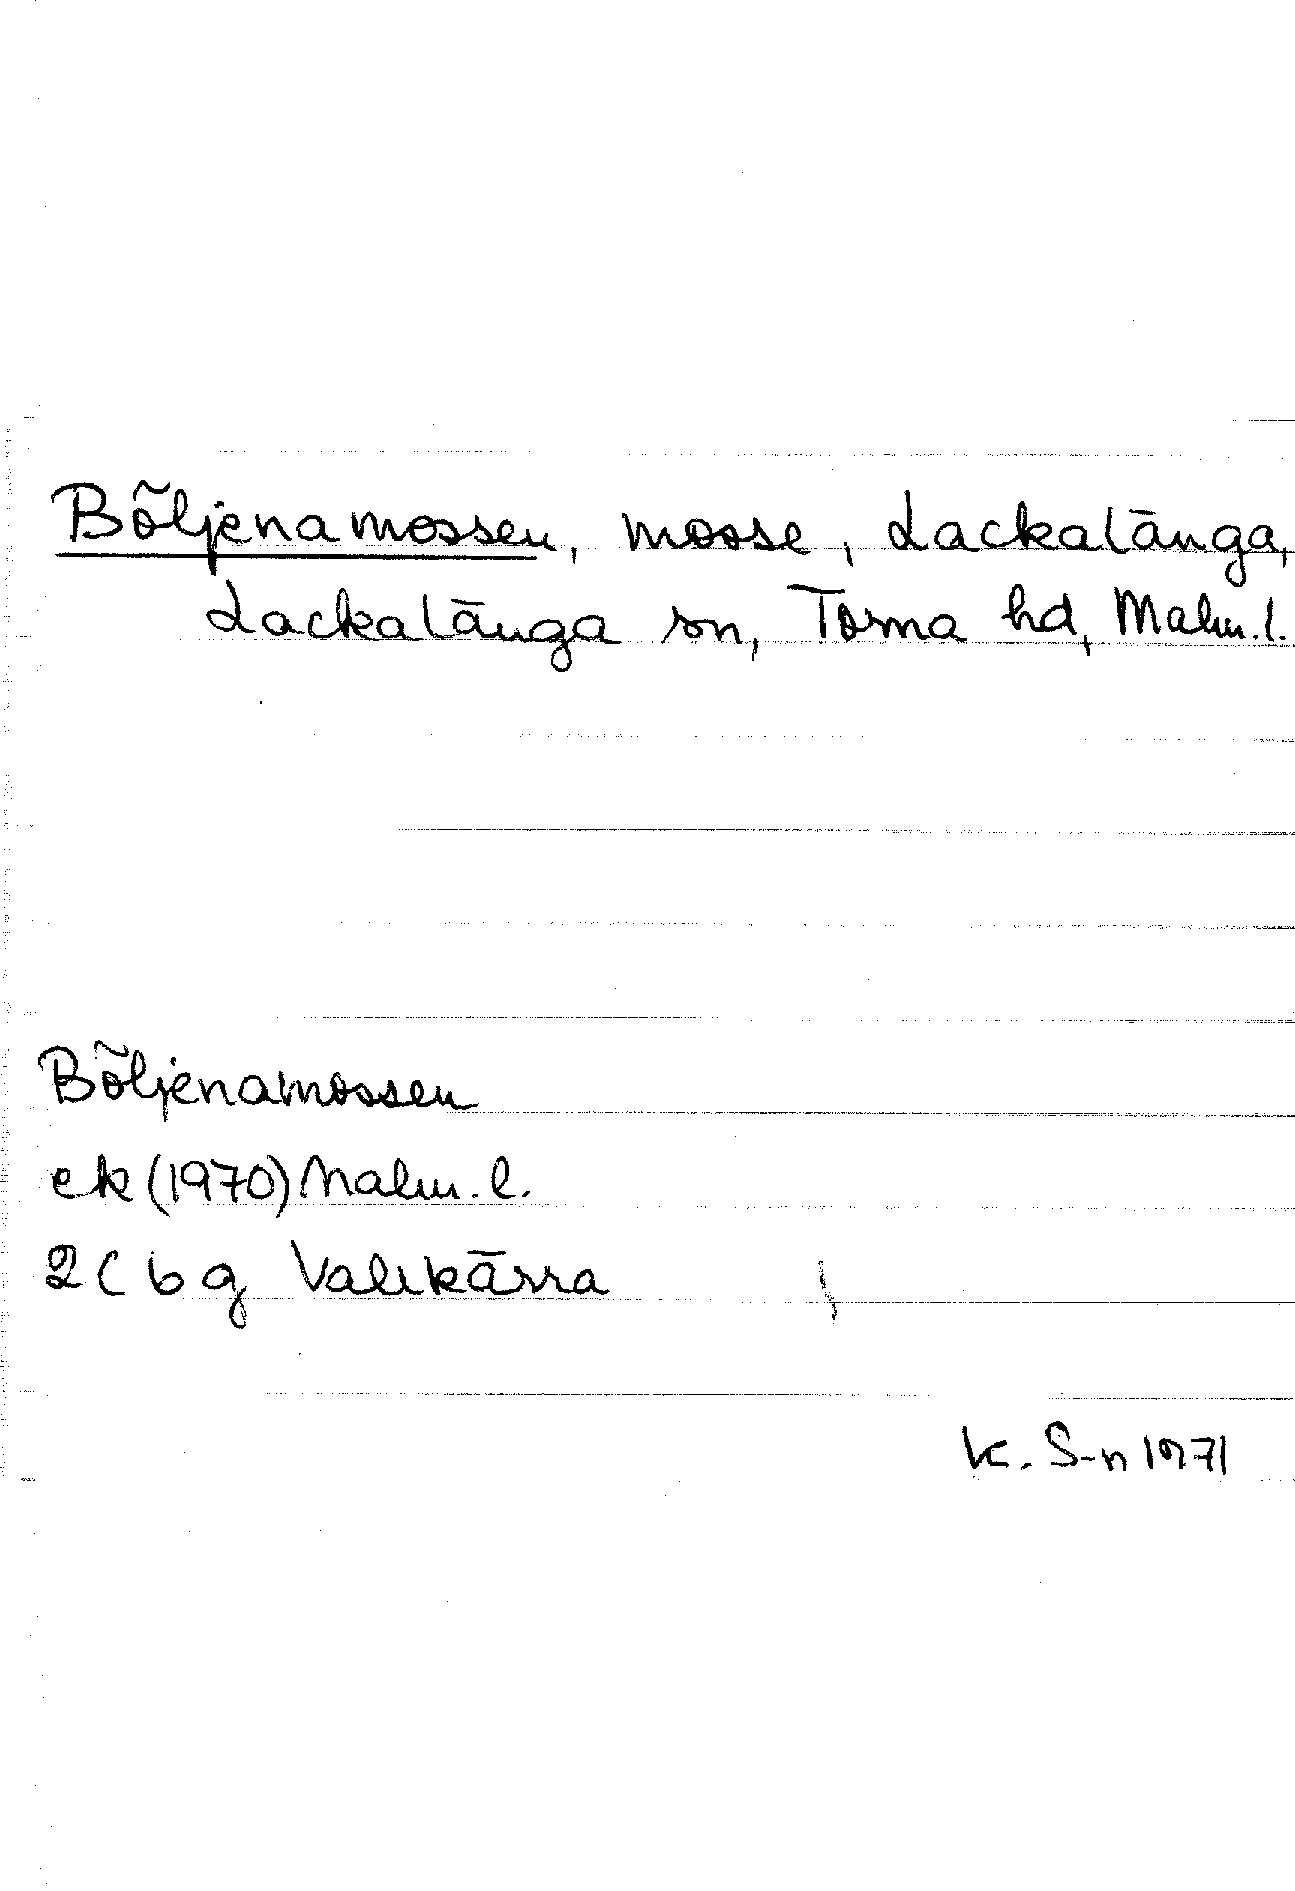 Böljenamossen, mosse, Lackalänga,
Lackalänga sn, Torna hd, Malm. l.
Böljenamossen
ek (1970) Malm. l.
2C 6 g Valkärra
K. S-n 1971